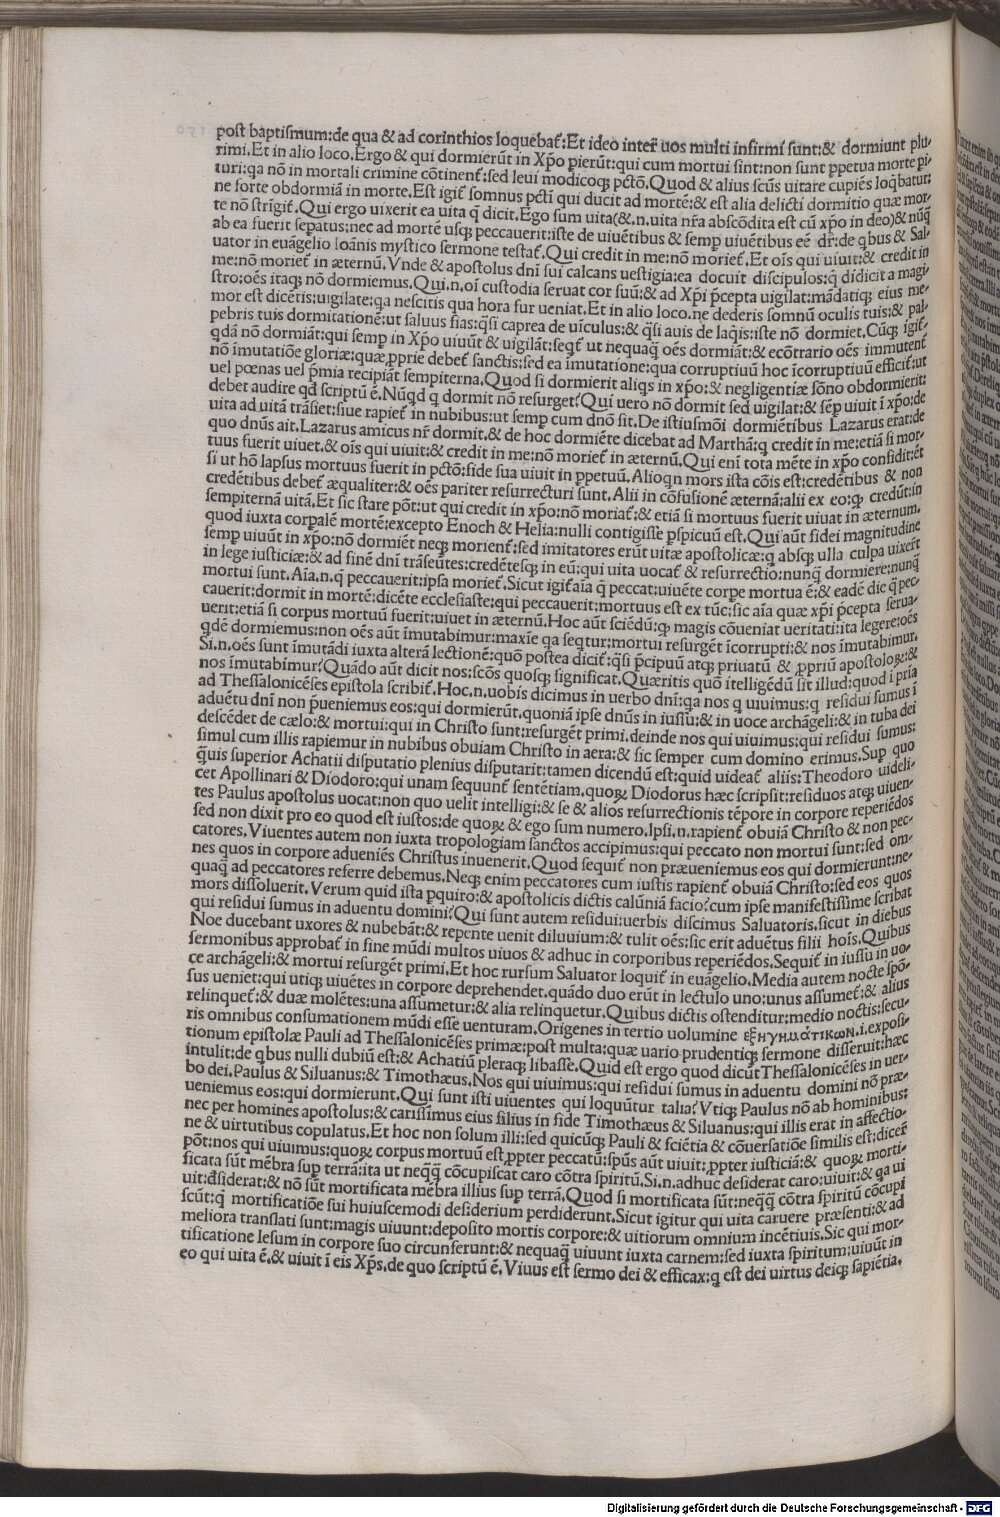 post baptismum:de qua & ad corinthios loquebat᷒:Et ideo inter̃ uos multi infirmi sunt:& dormiunt plu⸗
rimi.Et in alio loco.Ergo & qui dormierũt in Xp̃o pierũt:qui cum mortui sint:non sunt ppetua morte pi⸗
turi:qa nõ in mortali crimine cõtinent᷒:sed leui modicoq; pctõ.Quod & alius scũs uitare cupiẽs loq̃batur:
ne forte obdormiã in morte.Est igit᷒ somnus pcti qui ducit ad mortẽ:& est alia delicti dormitio quæ mor⸗
te nõ strĩgit᷒.Qui ergo uixerit ea uita q̃ dicit.Ego sum uita(&.n.uita nr̃a abscõdita est cũ xp̃o in deo)& nũq̃
ab ea fuerit sepatus:nec ad mortẽ usq; peccauerit:iste de uiuẽtibus & semp uiuẽtibus eẽ dr̃:de qbus & Sal⸗
uator in euãgelio Ioãnis mystico sermone testat᷒.Qui credit in me:nõ moriet᷒.Et oĩs qui uiuit:& credit in
me:nõ moriet᷒ in æternũ.Vnde & apostolus dnĩ sui calcans uestigia:ea docuit discipulos:q̃ didicit a magi⸗
stro:oẽs itaq; nõ dormiemus.Qui.n.oĩ custodia seruat cor suũ:& ad Xp̃i p̃cepta uigilat:mãdatiq; eius me⸗
mor est dicẽtis:uigilate:qa nescitis qua hora fur ueniat.Et in alio loco.ne dederis somnũ oculis tuis:& pal⸗
pebris tuis dormitationẽ:ut saluus fias:q̃si caprea de uĩculus:& q̃si auis de laq̃is:iste nõ dormiet.Cũq; igit᷒
qdã nõ dormiãt:qui semp in Xp̃o uiuũt & uigilãt:seqt᷒ ut nequaq̃ oẽs dormiãt:& ecõtrario oẽs immutent᷒
nõ ĩmutatiõe gloriæ:quæ pprie debet᷒ sanctis:sed ea ĩmutatione:qua corruptiuũ hoc ĩcorruptiuũ efficit᷒:ut
uel pœnas uel p̃mia recipiãt sempiterna.Quod si dormierit aliqs in xp̃o:& negligentiæ sõno obdormierit:
debet audire qd̃ scriptũ ẽ.Nũqd q dormit nõ resurget?Qui uero nõ dormit sed uigilat:& sẽp uiuit ĩ xp̃o:de
uita ad uitã trãsiet:siue rapiet᷒ in nubibus:ut semp cum dnõ sit.De istiusmõi dormiẽtibus Lazarus erat:de
quo dnũs ait.Lazarus amicus nr̃ dormit.& de hoc dormiẽte dicebat ad Marthã:q credit in me:etiã si mor⸗
tuus fuerit uiuet.& oĩs qui uiuit:& credit in me:nõ moriet᷒ in æternũ.Qui enĩ tota mẽte in xp̃o confidit:ẽt
si ut hõ lapsus mortuus fuerit in pctõ:fide sua uiuit in ppetuũ.Alioqn mors ista cõis est:credẽtibus & non
credẽtibus debet᷒ æqualiter:& oẽs pariter resurrecturi sunt.Alii in cõfusionẽ æternã:alii ex eo:q; credũt:in
sempiternã uitã.Et sic stare põt:ut qui credit in xp̃o:nõ moriat᷒:& etiã si mortuus fuerit uiuat in æternum.
quod iuxta corpalẽ mortẽ:excepto Enoch & Helia:nulli contigisse pspicuũ est.Qui aũt fidei magnitudine
semp uiuũt in xp̃o:nõ dormiẽt neq; morient᷒:sed imitatores erũt uitæ apostolicæ:q absq; ulla culpa uixer̃t
in lege iusticiæ:& ad finẽ dnĩ trãseũtes:credẽtesq; in eũ:qui uita uocat᷒ & resurrectio:nunq̃ dormiere:nunq̃
mortui sunt.Aĩa.n.q̃ peccauerit:ipsa moriet᷒.Sicut igit᷒ aĩa q̃ peccat:uiuẽte corpe mortua ẽ:& eadẽ die q̃ pec⸗
cauerit:dormit in mortẽ:dicẽte ecclesiaste:qui peccauerit:mortuus est ex tũc:sic aĩa quæ xp̃i p̃cepta serua⸗
uerit:etiã si corpus mortuũ fuerit:uiuet in æternũ.Hoc aũt sciẽdũ:q; magis cõueniat ueritati:ita legere:oẽs
qdẽ dormiemus:non oẽs aũt ĩmutabimur:maxĩe qa seqtur:mortui resurgẽt ĩcorrupti:& nos ĩmutabimur.
Si.n.oẽs sunt ĩmutãdi iuxta alterã lectionẽ:quõ postea dicit᷒:q̃si p̃cipuũ atq; priuatũ & ppriũ apostoloꝝ:&
nos ĩmutabimur?Quãdo aũt dicit nos:scõs quosq; significat.Quæritis quõ ĩtelligẽdũ sit illud:quod ĩ pria
ad Thessalonicẽses epistola scribit᷒.Hoc.n.uobis dicimus in uerbo dnĩ:qa nos q uiuimus:q residui sumus ĩ
aduẽtu dnĩ non p̃ueniemus eos:qui dormierũt.quoniã ipse dnũs in iussũ:& in uoce archãgeli:& in tuba dei
descẽdet de cælo:& mortui:qui in Christo sunt:resurgẽt primi.deinde nos qui uiuimus:qui residui sumus:
simul cum illis rapiemur in nubibus obuiam Christo in aera:& sic semper cum domino erimus.Sup quo
q̃uis superior Achatii disputatio plenius disputarit:tamen dicendũ est:quid uideat᷒ aliis:Theodoro uideli⸗
cet Apollinari & Diodoro:qui unam sequunt᷒ sentẽtiam.quoꝝ Diodorus hæc scripsit:residuos atq; uiuen⸗
tes Paulus apostolus uocat:non quo uelit intelligi:& se & alios resurrectionis tẽpore in corpore reperiẽdos
sed non dixit pro eo quod est iustos:de quoꝝ & ego sum numero.Ipsi.n.rapient᷒ obuiã Christo & non pec⸗
catores.Viuentes autem non iuxta tropologiam sanctos accipimus:qui peccato non mortui sunt:sed om⸗
nes quos in corpore adueniẽs Christus inuenerit.Quod sequit᷒ non præueniemus eos qui dormierunt:ne⸗
quaq̃ ad peccatores referre debemus.Neq; enim peccatores cum iustis rapient᷒ obuiã Christo:sed eos quos
mors dissoluerit.Verum quid ista pquiro:& apostolicis dictis calũniã facio?cum ipse manifestissime scribat
qui residui sumus in aduentu domini?Qui sunt autem residui:uerbis discimus Saluatoris.sicut in diebus
Noe ducebant uxores & nubebãt:& repente uenit diluuium:& tulit oẽs:sic erit aduẽtus filii hoĩs.Quibus
sermonibus approbat᷒ in fine mũdi multos uiuos & adhuc in corporibus reperiẽdos.Sequit᷒ in iussu in uo⸗
ce archãgeli:& mortui resurgẽt primi.Et hoc rursum Saluator loquit᷒ in euãgelio.Media autem nocte spõ⸗
sus ueniet:qui utiq; uiuẽtes in corpore deprehendet.quãdo duo erũt in lectulo uno:unus assumet᷒:& alius
relinquet᷒:& duæ molẽtes:una assumetur:& alia relinquetur.Quibus dictis ostenditur:medio noctis:secu⸗
ris omnibus consumationem mũdi esse uenturam.Origenes in tertio uolumine εξηγημάτικων.i.exposi⸗
tionum epistolæ Pauli ad Thessalonicẽses primæ:post multa:quæ uario prudentiq; sermone disseruit:hæc
intulit:de qbus nulli dubiũ est:& Achatiũ pleraq; libasse.Quid est ergo quod dicũt Thessalonicẽses in uer⸗
bo dei.Paulus & Siluanus:& Timothæus.Nos qui uiuimus:qui residui sumus in aduentu domini nõ præ⸗
ueniemus eos:qui dormierunt.Qui sunt isti uiuentes qui loquũtur talia?Vtiq; Paulus nõ ab hominibus:
nec per homines apostolus:& carissimus eius filius in fide Timothæus & Siluanus:qui illis erat in affectio⸗
ne & uirtutibus copulatus.Et hoc non solum illi:sed quicũq; Pauli & sciẽtia & cõuersatiõe similis est:dicer̃
põt:nos qui uiuimus:quoꝝ corpus mortuũ est ppter peccatũ:spũs aũt uiuit:ppter iusticiã:& quoꝝ morti⸗
ficata sũt mẽbra sup terrã:ita ut neqq̃ cõcupiscat caro cõtra spiritũ.Si.n.adhuc desiderat caro:uiuit:& qa ui
uit:dsiderat:& nõ sũt mortificata mẽbra illius sup terrã.Quod si mortificata sũt:neqq̃ cõtra spiritũ cõcupi
scũt:q̃ mortificatiõe sui huiuscemodi desiderium perdiderunt.Sicut igitur qui uita caruere præsenti:& ad
meliora translati sunt:magis uiuunt:deposito mortis corpore:& uitiorum omnium incẽtiuis.Sic qui mor⸗
tificatione Iesum in corpore suo circunferunt:& nequaq̃ uiuunt iuxta carnem:sed iuxta spiritum:uiuũt in
eo qui uita ẽ.& uiuit ĩ eis Xp̃s.de quo scriptũ ẽ.Viuus est sermo dei & efficax:q est dei uirtus deiq; sapiẽtia.
Digitalisierung gefördert durch die Deutsche Forschungsgemeinschaft - DFG